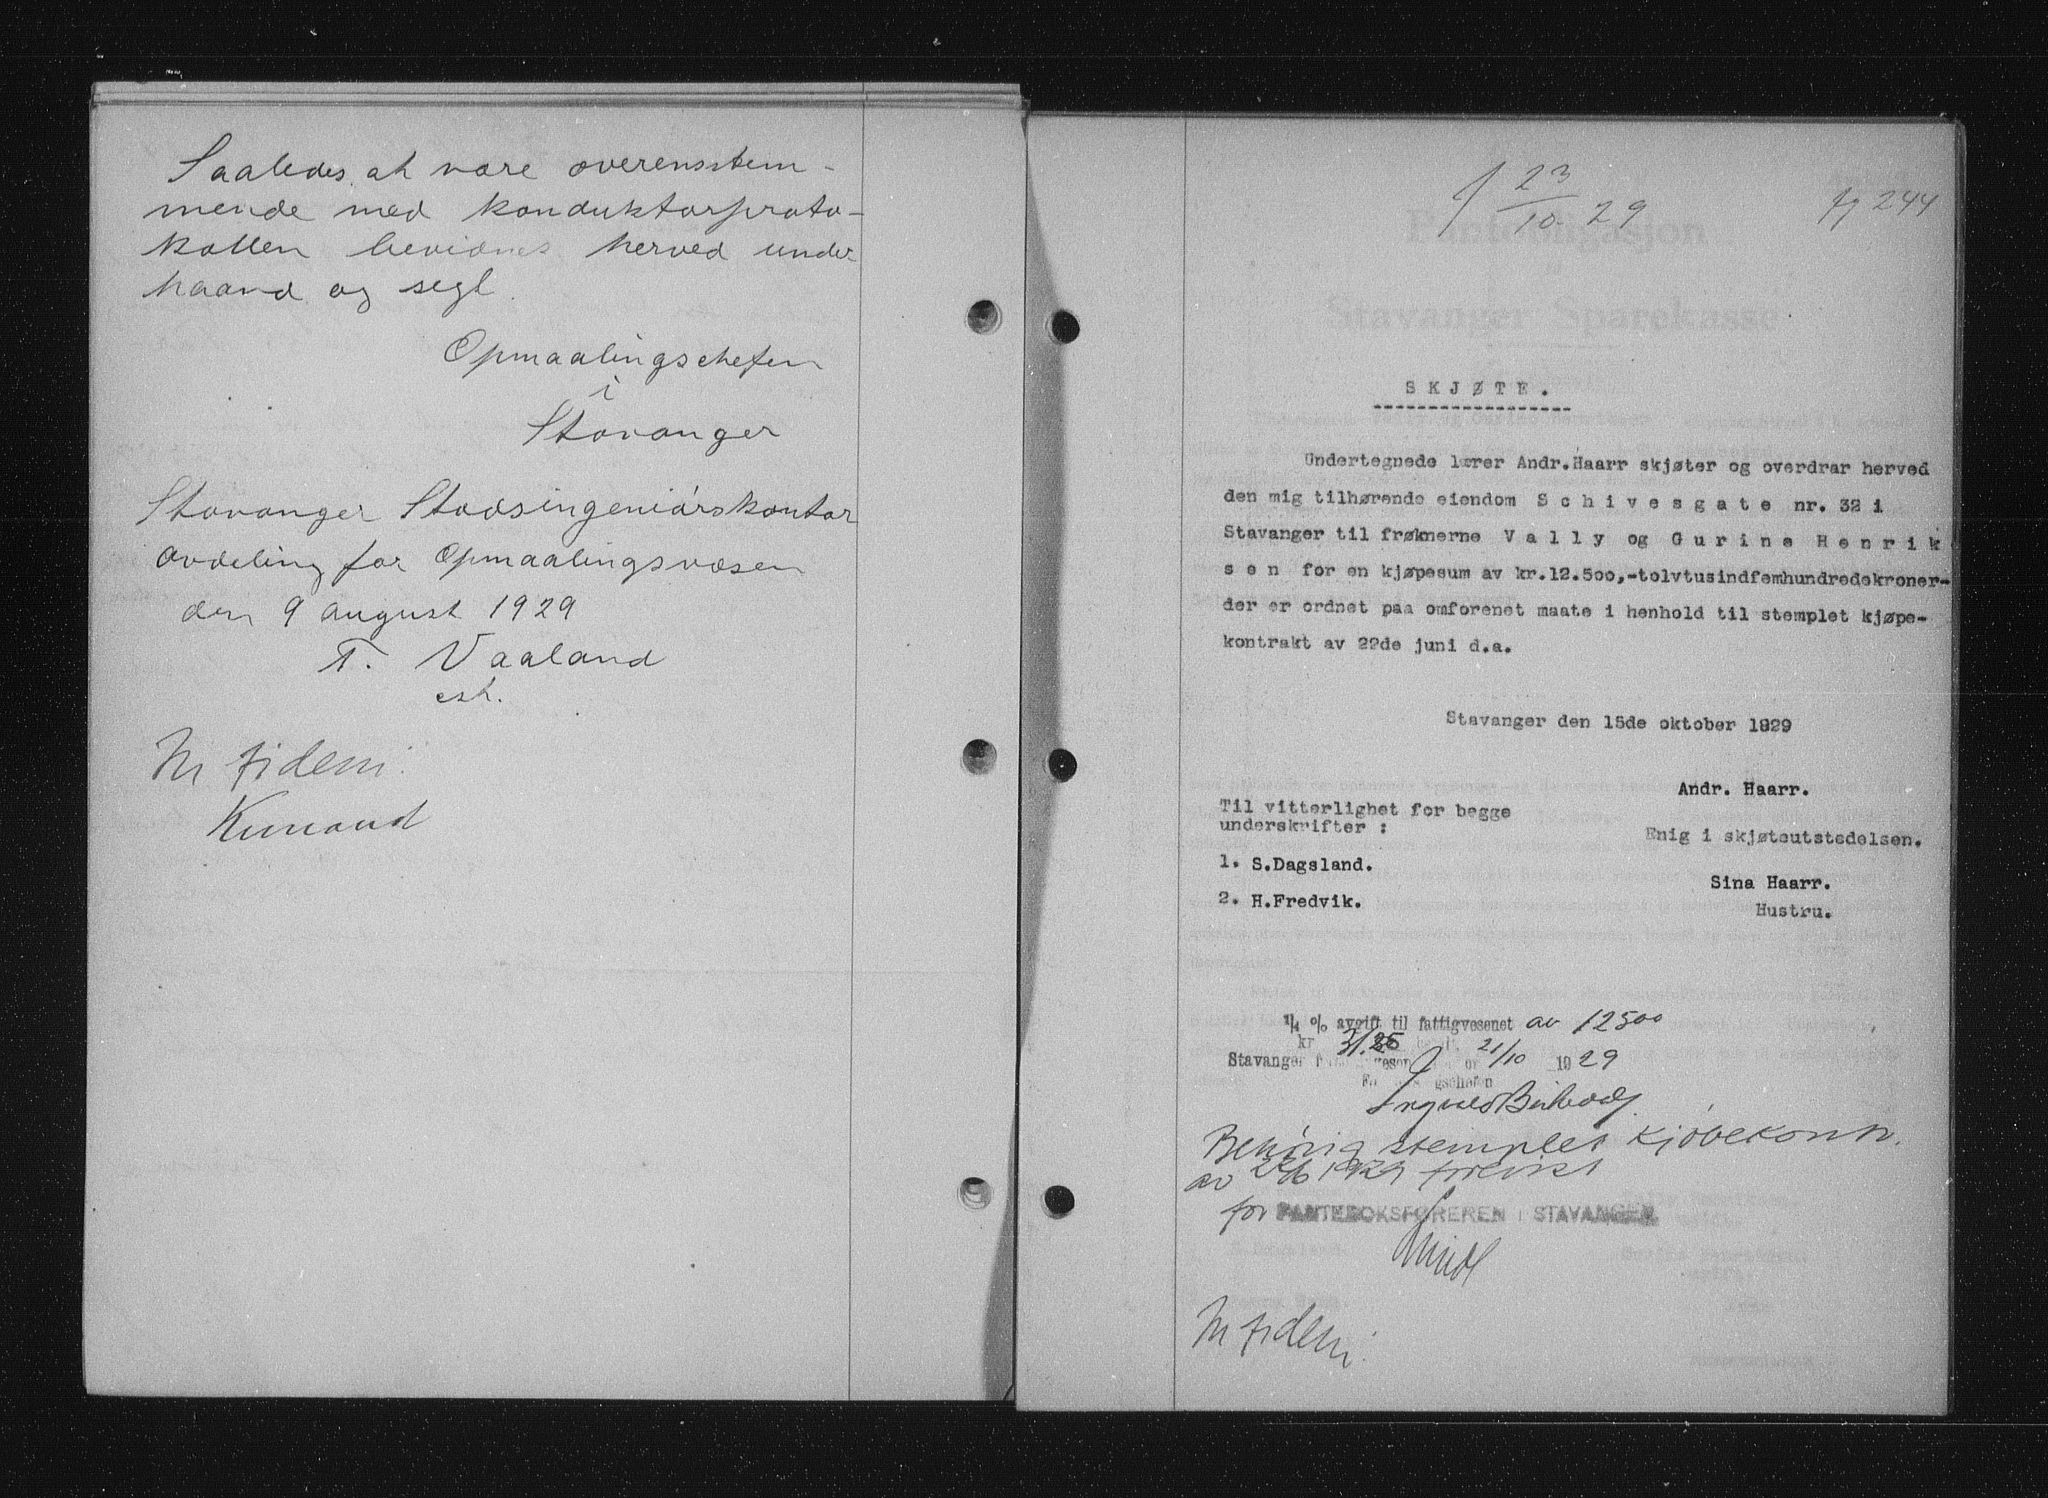 Saaledes at være overensstem-
mende med konduktørproto-
kollen bevidnes herved under
haand og segl.
Opmaalingschefen
i
Stavanger
Stavanger Stadsingeniørskontor
avdeling for Opmaalingsvæsen
den 9 august 1929
T. Vaaland
est.
In fidem:
23/10 29
244
Pantobligasjon
Stavanger Sparekasse
SKJØTE.
Undertegnede lærer Andr. Haarr skjøter og overdrar herved
den mig tilhørende eiendom Schivesgate nr. 32 i
Stavanger til frøknerne Vally og Gurine Henrik
sen for en kjøpesum av kr.12.500,-tolvtusindfemhundredekroner-
der er ordnet paa omforenet maate i henhold til stemplet kjøpe-
kontrakt av 22de juni d.a.
Stavanger den 15de oktober 1929
Andr. Haarr.
Til vitterlighet for begge
underskrifter :
Enig i skjøteutstedelsen.
1. S.Dagsland.
Sina Haarr.
2. H.Fredvik.
Hustru.
1/4 % avgift til fattigvesenet av 12500
kr 31.25 21/10
Stavanger 1929
Behørig stemplet kjøbekontr.
av 22/6 1929 forevist
for PANTEBOKSFØREREN I STAVANGER
In fidem: